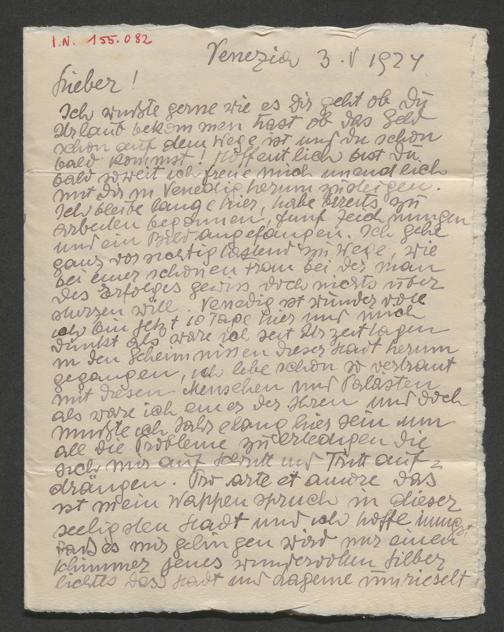 I.N. 155.082
Venezia 3.V 1924
Lieber!
Ich wusste gerne wie es Dir geht ob Du
Urlaub bekommen hast ob das Geld
schon auf dem Wege ist und du schon
bald kommst! Hoffentlich bist Du
bald soweit ich freue mich unendlich
mit dir in Venedig herum zu steigen.
Ich bleibe lange hier, habe bereits zu
arbeiten begonnen, fünf Zeichnungen
und ein Bild angefangen. Ich gehe
ganz vorsichtig tastend zu Wege, wie
bei einer schönen Frau bei der man
des Erfolges gewiss doch nichts über
stürzen will. Venedig ist wundervoll
ich bin jetzt 10 Tage hier und mich
dünkt als wäre ich seit Urzeittagen
in den Geheimnissen dieser Stadt herum
gegangen, ich lebe schon so vertraut
mit diesen Menschen und Palästen
als wäre ich einer der Ihren und doch
müsste ich Jahre lang hier sein um
alle die Probleme zu erledigen die
sich mir auf Schritt und Tritt auf=
drängen. Pro arte et amore das
ist mein Wappenspruch in dieser
seeligsten Stadt und ich hoffe
dass es mir gelingen wird nur einen
Schimmer jenes wundervollen Silber
lichtes das Stadt und Lagune umrieselt